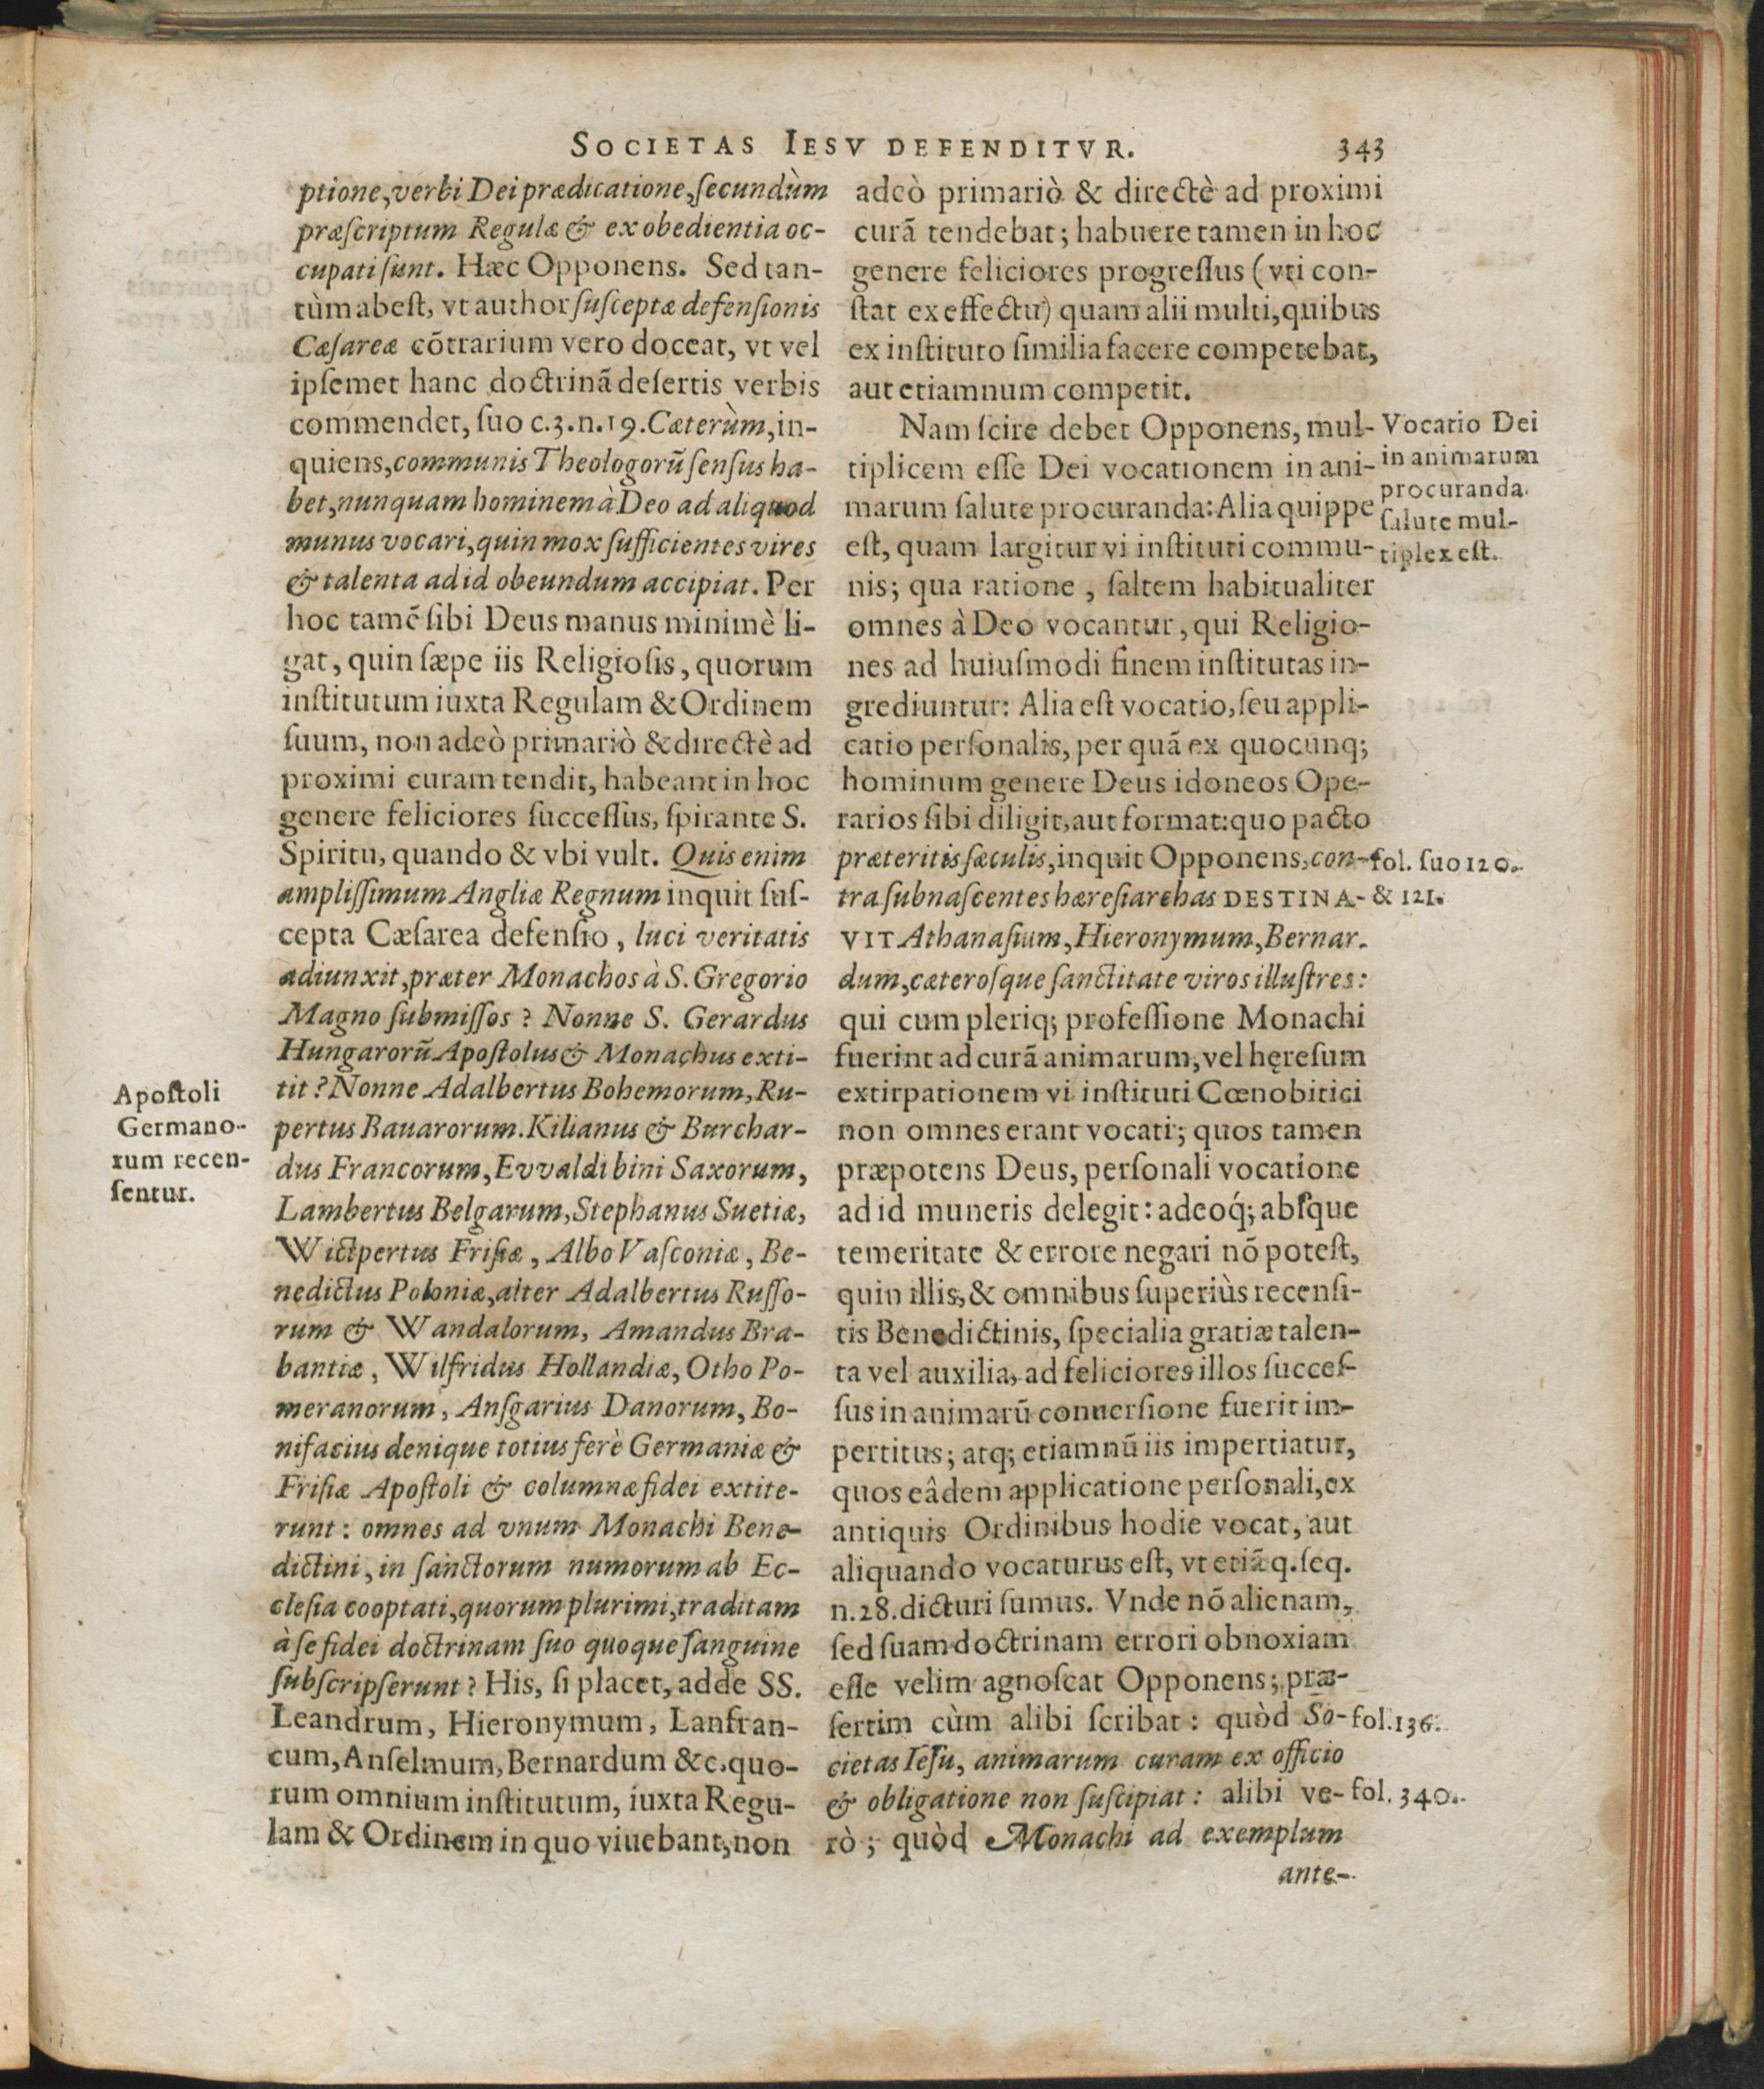 SOCIETAS IESV DEFENDITVR. 343
ptione, verbi Dei prædicatione, ſecundùm
præſcriptum Regulæ & ex obedientia oc-
cupati ſunt. Hæc Opponens. Sed tan-
tùm abeſt, vt author ſuſceptæ defenſionis
Cæſareæ cōtrarium vero doceat, vt vel
ipſemet hanc doctrinā deſertis verbis
commendet, ſuo c.3.n.19. Cæterùm, in-
quiens, communis Theologorū ſenſus ha-
bet, nunquam hominem à Deo ad aliquod
munus vocari, quin mox ſufficientes vires
& talenta ad id obeundum accipiat. Per
hoc tamē ſibi Deus manus minimè li-
gat, quin ſæpe iis Religioſis, quorum
inſtitutum iuxta Regulam & Ordinem
ſuum, non adeò primariò & directè ad
proximi curam tendit, habeant in hoc
genere feliciores ſucceſſus, ſpirante S.
Spiritu, quando & vbi vult. Quis enim
ampliſſimum Angliæ Regnum inquit ſuſ-
cepta Cæſarea defenſio, luci veritatis
adiunxit, præter Monachos à S. Gregorio
Magno ſubmiſſos? Nonne S. Gerardus
Hungarorū Apoſtolus & Monachus exti-
tit? Nonne Adalbertus Bohemorum, Ru-
pertus Bauarorum. Kilianus & Burchar-
dus Francorum, Evvaldi bini Saxorum,
Lambertus Belgarum, Stephanus Suetiæ,
Wictpertus Friſiæ, Albo Vaſconiæ, Be-
nedictus Poloniæ, alter Adalbertus Ruſſo-
rum & Wandalorum, Amandus Bra-
bantiæ, Wilfridus Hollandiæ, Otho Po-
meranorum, Anſgarius Danorum, Bo-
nifacius denique totius ferè Germaniæ &
Friſiæ Apoſtoli & columnæ fidei extite-
runt: omnes ad vnum Monachi Bene-
dictini, in ſanctorum numorum ab Ec-
cleſia cooptati, quorum plurimi, traditam
à ſe fidei doctrinam ſuo quoque ſanguine
ſubſcripſerunt? His, ſi placet, adde SS.
Leandrum, Hieronymum, Lanfran-
cum, Anſelmum, Bernardum &c. quo-
rum omnium inſtitutum, iuxta Regu-
lam & Ordinem in quo viuebant, non
Apoſtoli
Germano-
rum recen-
ſentur.
adeò primariò & directè ad proximi
curā tendebat; habuere tamen in hoc
genere feliciores progreſſus (vti con-
ſtat ex effectu) quam alii multi, quibus
ex inſtituto ſimilia facere competebat,
aut etiamnum competit.
Nam ſcire debet Opponens, mul-
tiplicem eſſe Dei vocationem in ani-
marum ſalute procuranda: Alia quippe
eſt, quam largitur vi inſtituti commu-
nis; qua ratione, ſaltem habitualiter
omnes à Deo vocantur, qui Religio-
nes ad huiuſmodi finem inſtitutas in-
grediuntur: Alia eſt vocatio, ſeu appli-
catio perſonalis, per quā ex quocunq;
hominum genere Deus idoneos Ope-
rarios ſibi diligit, aut format: quo pacto
præteritis ſæculis, inquit Opponens, con-
tra ſubnaſcentes hæreſiarchas DESTINA-
VIT Athanaſium, Hieronymum, Bernar-
dum, cæteroſque ſanctitate viros illuſtres:
qui cum pleriq; profeſſione Monachi
fuerint ad curā animarum, vel hęreſum
extirpationem vi inſtituti Cœnobitici
non omnes erant vocati; quos tamen
præpotens Deus, perſonali vocatione
ad id muneris delegit: adeoq́; abſque
temeritate & errore negari nō poteſt,
quin illis, & omnibus ſuperiùs recenſi-
tis Benedictinis, ſpecialia gratiæ talen-
ta vel auxilia, ad feliciores illos ſucceſ-
ſus in animarū conuerſione fuerit im-
pertitus; atq; etiamnū iis impertiatur,
quos eâdem applicatione perſonali, ex
antiquis Ordinibus hodie vocat, aut
aliquando vocaturus eſt, vt etiā q. ſeq.
n.28. dicturi ſumus. Vnde nō alienam,
ſed ſuam doctrinam errori obnoxiam
eſſe velim agnoſcat Opponens; præ-
ſertim cùm alibi ſcribat: quòd So-
cietas Ieſu, animarum curam ex officio
& obligatione non ſuſcipiat: alibi ve-
rò; quòd Monachi ad exemplum
ante-
Vocatio Dei
in animarum
procuranda
ſalute mul-
tiplex eſt.
fol. ſuo 120.
& 121.
fol. 136.
fol. 340.